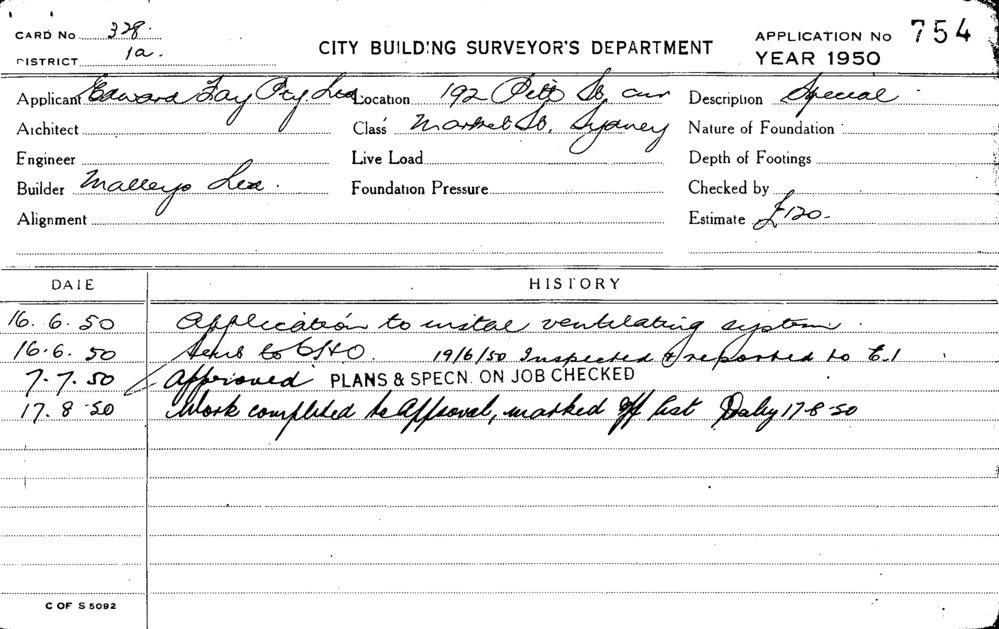 CARD No 328.
DISTRICT 1a.
CITY BUILDING SURVEYOR'S DEPARTMENT
APPLICATION No 754
YEAR 1950
Applicant Edward Fay Pty Ltd Location 192 Pitt St, cnr Description Special
Architect Class Market St, Sydney Nature of Foundation
Engineer Live Load Depth of Footings
Builder Malleys Ltd. Foundation Pressure Checked by
Alignment Estimate £120-
DATE HISTORY
16.6.50 Application to instal ventilating system.
16.6.50 Sent to CHO. 19/6/50 Inspected & reported to E.1
7.7.50 Approved PLANS & SPECN. ON JOB CHECKED
17.8.50 Work completed to approval, marked off list 17-8-50
C OF S 5092